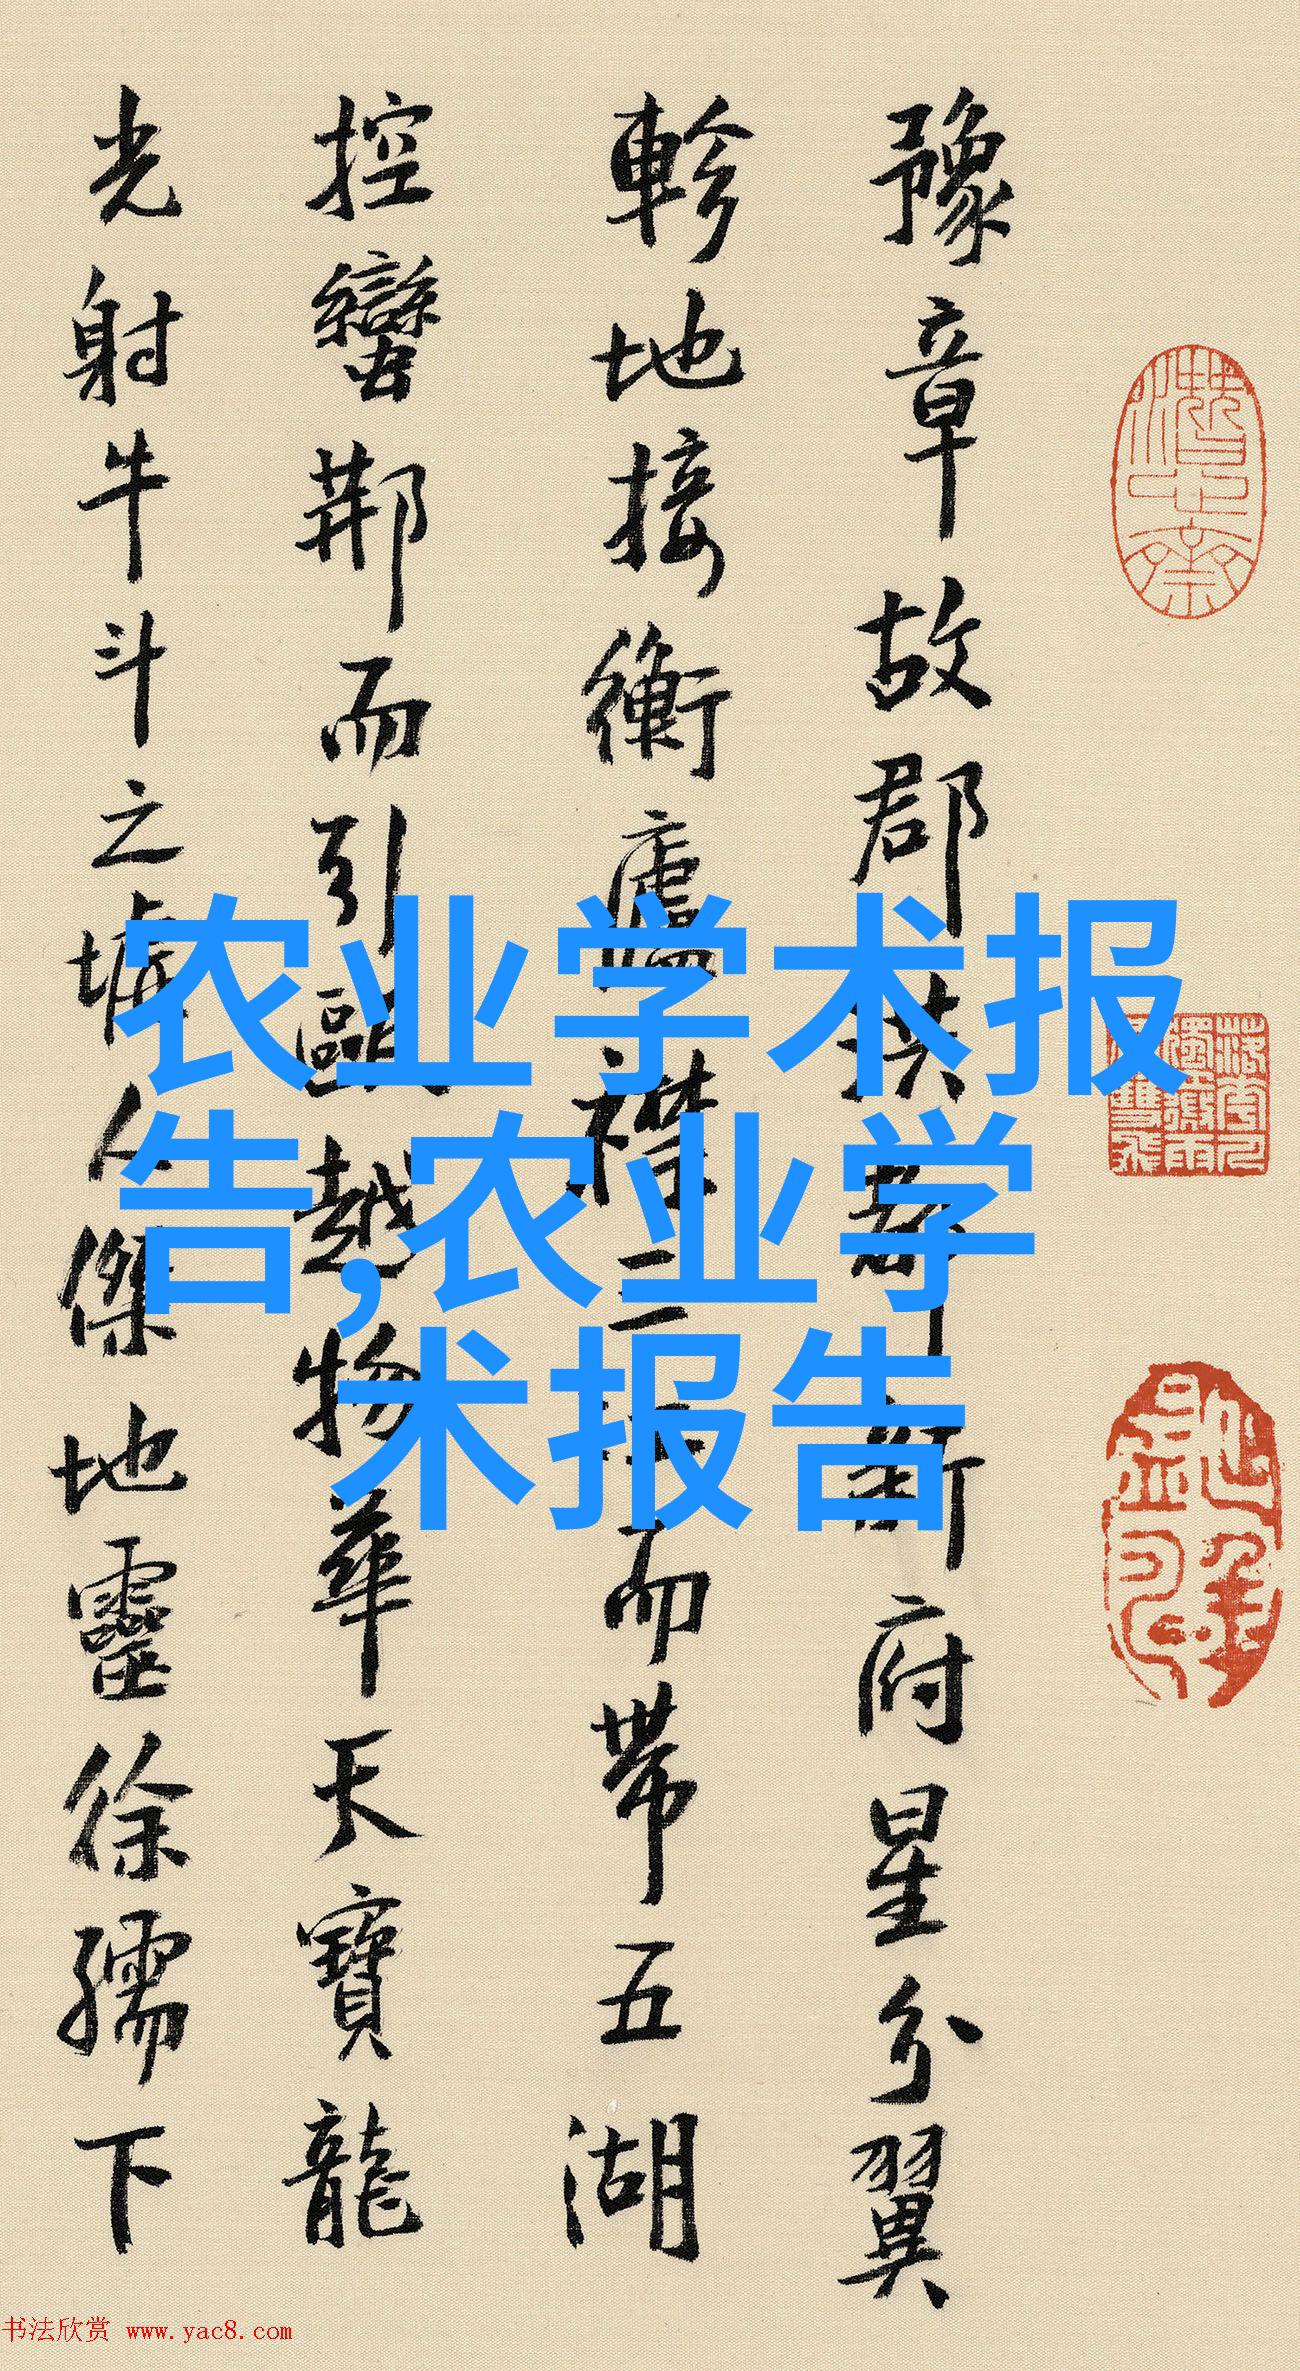 豫章故郡都新府星分翼
軫地接衡廬襟三而帶五湖
控蠻荊而引甌越物華天寶龍
光射牛斗之墟人傑地靈徐孺下
农业学术报
告,农业学
术报告
书法欣赏 www.yac8.com